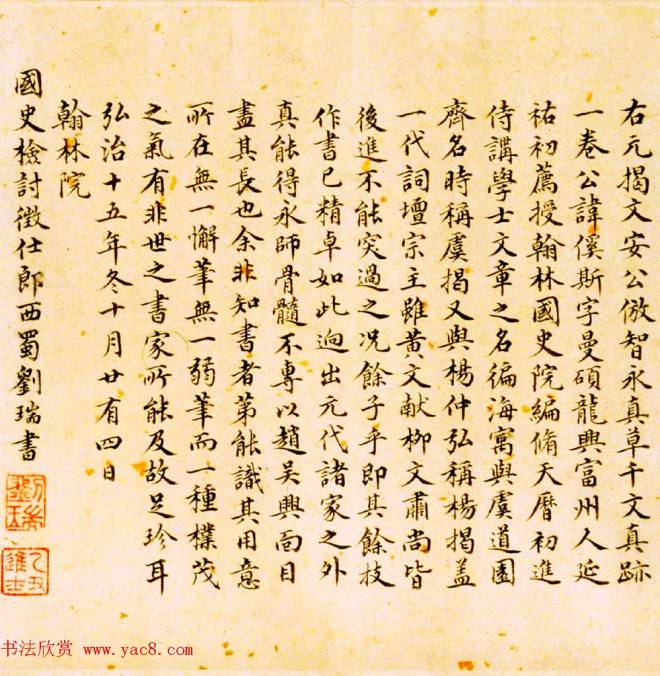 右元揭文安公倣智永真草千文真跡
一卷公諱傒斯字曼碩龍興富州人延
祐初薦授翰林國史院編脩天曆初進
侍講學士文章之名徧海寓與虞道園
齊名時稱虞揭又與楊仲弘稱楊揭蓋
一代詞壇宗主雖黃文献柳文肅尚皆
後進不能突過之况餘子乎即其餘技
作書已精卓如此逈出元代諸家之外
真能得永師骨髓不專以趙吳興面目
盡其長也余非知書者第能識其用意
所在無一懈筆無一弱筆而一種樸茂
之氣有非世之書家所能及故足珍耳
弘治十五年冬十月廿有四日
翰林院
國史檢討徵仕郎西蜀劉瑞書
劉瑞
進士
书法欣赏 www.yac8.com